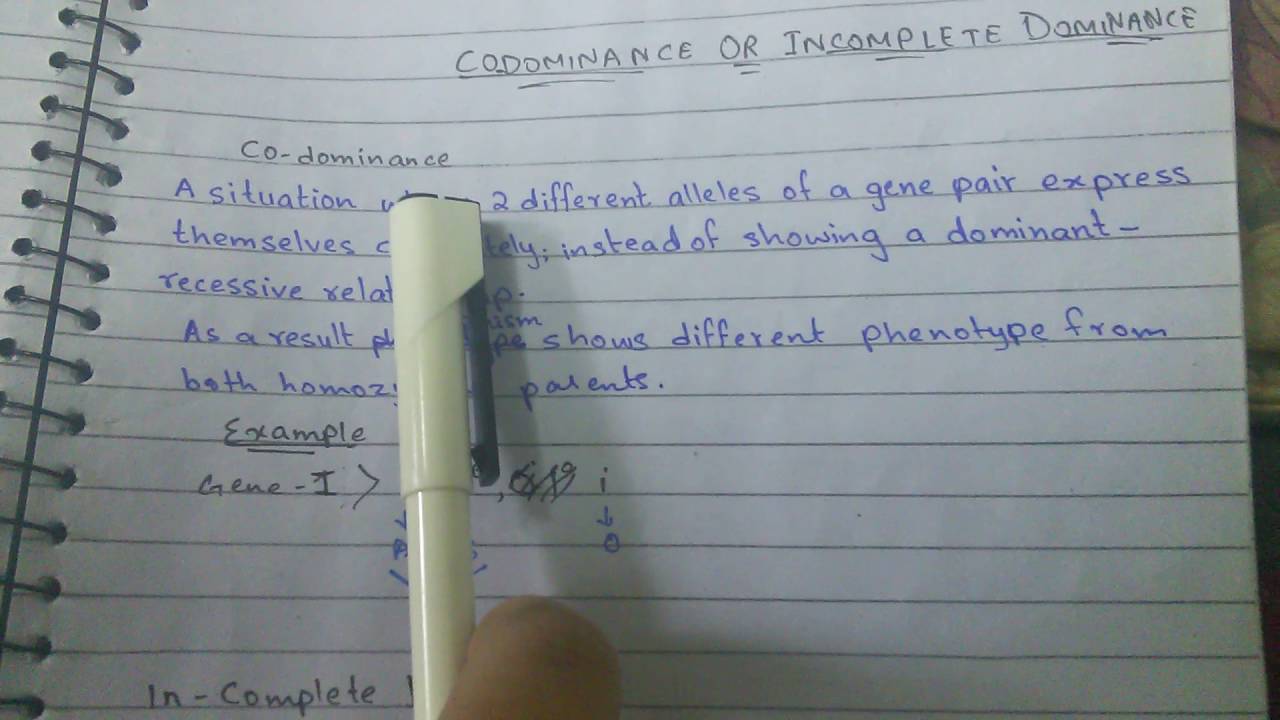 CODOMINANCE OR INCOMPLETE DOMINANCE
Co-dominance
A situation 2 different alleles of a gene pair express
themselves instead of showing a dominant-
recessive
As a result shows different phenotype from
both parents.
Example
Gene-I > , i
O
In-Complete